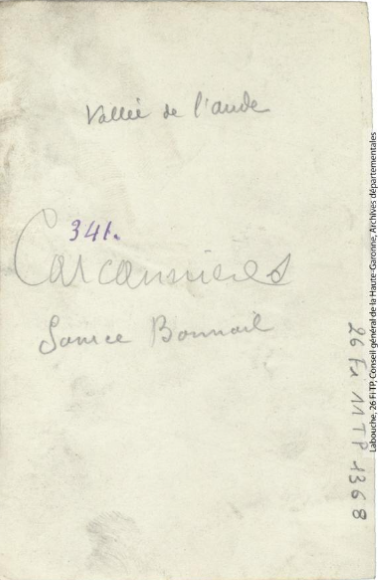 Vallée de l'aude
341.
Carcannières
Source Bonnail
26 Fi 11 TP 1368
Labouche, 26 Fi TP, Conseil général de la Haute-Garonne, Archives départementales